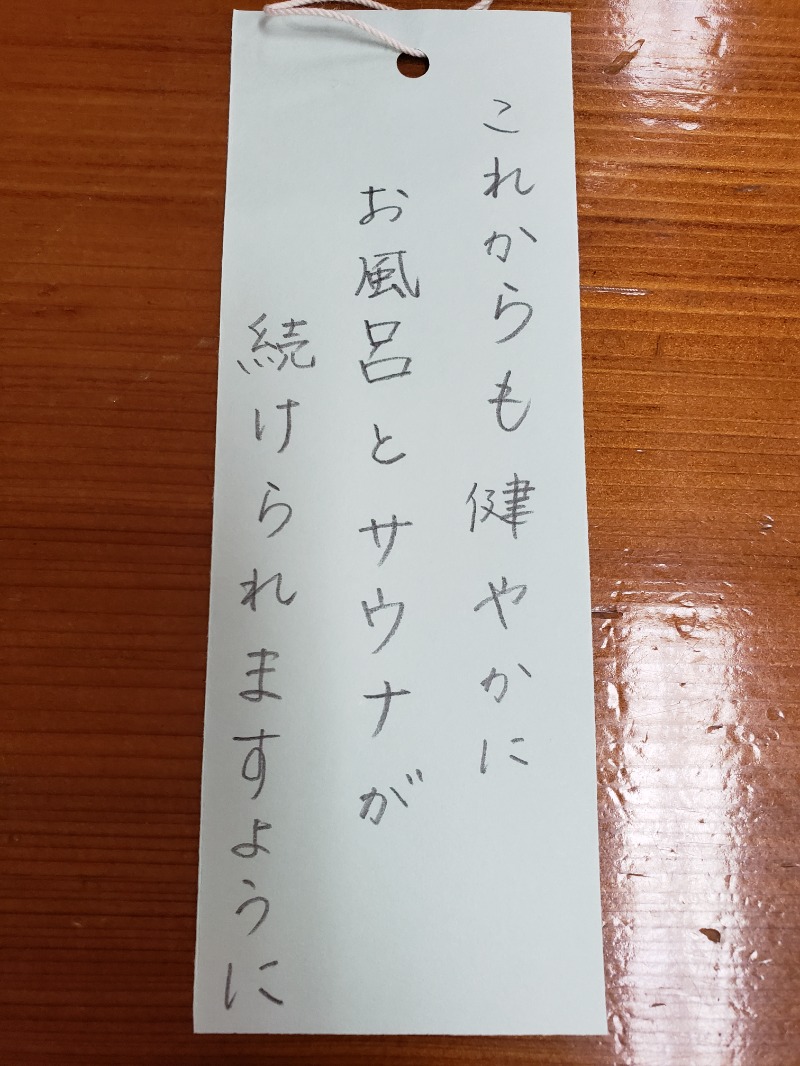 これからも健やかに
お風呂とサウナが
続けられますように